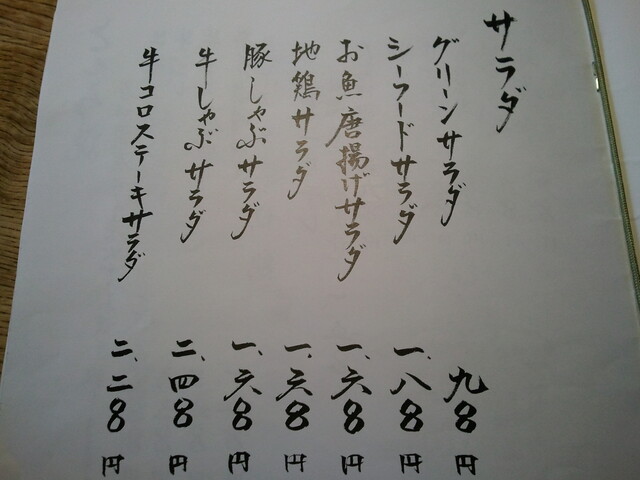 サラダ
グリーンサラダ 九〇〇円
シーフードサラダ 一、八〇〇円
お魚唐揚げサラダ 一、六〇〇円
地鶏サラダ 一、六〇〇円
豚しゃぶサラダ 一、六〇〇円
牛しゃぶサラダ 二、四〇〇円
牛コロステーキサラダ 二、二〇〇円